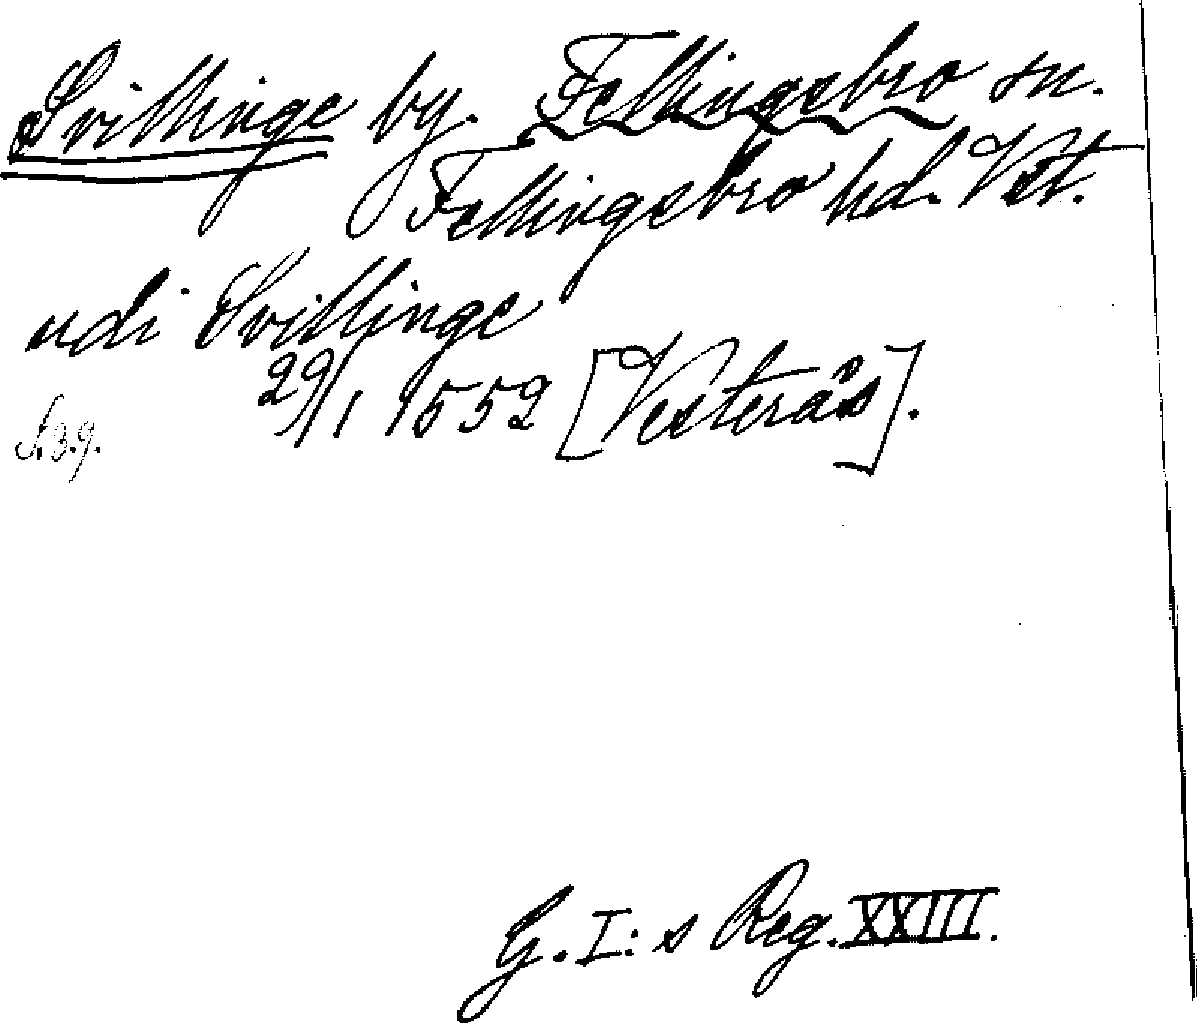 Svillinge by. Fellingsbro sn.
Fellingsbro hd. Vstm.
udi Svillinge
29/1 1552 [Vesterås].
S. 39.
G. I:s Reg. XXIII.